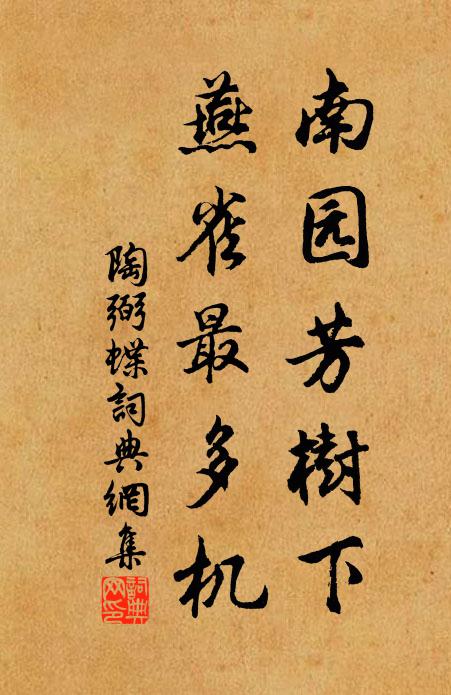 南园芳樹下
燕雀最多机
陶弼蝶詞典網集
詞典网印